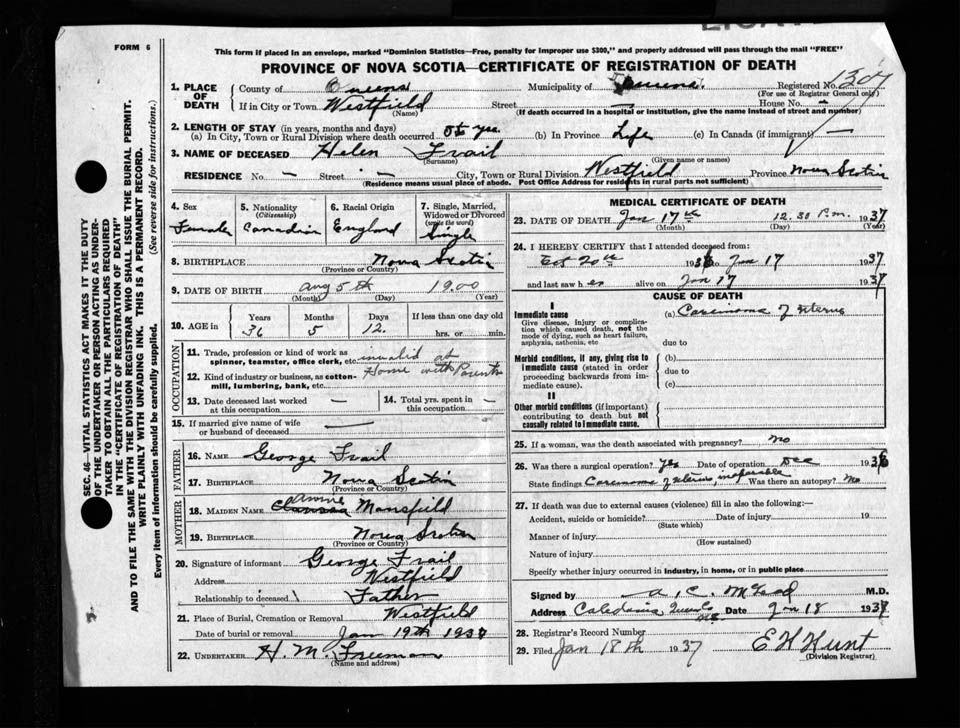 FORM 6
This form if placed in an envelope, marked "Dominion Statistics—Free, penalty for improper use $300," and properly addressed will pass through the mail "FREE"
PROVINCE OF NOVA SCOTIA—CERTIFICATE OF REGISTRATION OF DEATH
1. PLACE OF DEATH County of Queens Municipality of Queens Registered No. 1307
(For use of Registrar General only)
If in City or Town Westfield Street — House No. —
(Name) (If death occurred in a hospital or institution, give the name instead of street and number)
2. LENGTH OF STAY (in years, months and days)
(a) In City, Town or Rural Division where death occurred yrs (b) In Province Life (c) In Canada (if immigrant) —
3. NAME OF DECEASED Helen Frail
(Surname) (Given name or names)
RESIDENCE No. — Street — City, Town or Rural Division Westfield Province Nova Scotia
(Residence means usual place of abode. Post Office Address for residents in rural parts not sufficient)
4. Sex Female
5. Nationality (Citizenship) Canadian
6. Racial Origin England
7. Single, Married, Widowed or Divorced (write the word) Single
8. BIRTHPLACE Nova Scotia
(Province or Country)
9. DATE OF BIRTH Aug 5th 1900
(Month) (Day) (Year)
10. AGE in Years Months Days If less than one day old
36 5 12. hrs. or min.
OCCUPATION
11. Trade, profession or kind of work as spinner, teamster, office clerk, etc. invalid at
12. Kind of industry or business, as cotton-mill, lumbering, bank, etc. Home with Parents
13. Date deceased last worked at this occupation — 14. Total yrs. spent in this occupation —
15. If married give name of wife or husband of deceased —
FATHER
16. NAME George Frail
17. BIRTHPLACE Nova Scotia
(Province or Country)
MOTHER
18. MAIDEN NAME Annie Mansfield
19. BIRTHPLACE Nova Scotia
(Province or Country)
20. Signature of informant George Frail
Address Westfield
Relationship to deceased Father
21. Place of Burial, Cremation or Removal Westfield
Date of burial or removal Jan 19th 1937
22. UNDERTAKER H. M. Freeman
(Name and address)
MEDICAL CERTIFICATE OF DEATH
23. DATE OF DEATH Jan 17th 12.30 P.m. 1937
(Month) (Day) (Year)
24. I HEREBY CERTIFY that I attended deceased from:
Oct 20th 1936 to Jan 17 1937
and last saw her alive on Jan 17 1937
CAUSE OF DEATH
I
Immediate cause (a) Carcinoma of Uterus
Give disease, injury or complication which caused death, not the mode of dying, such as heart failure, asphyxia, asthenia, etc
due to
Morbid conditions, if any, giving rise to immediate cause (stated in order proceeding backwards from immediate cause).
(b)
due to
(c)
II
Other morbid conditions (if important) contributing to death but not causally related to immediate cause.
25. If a woman, was the death associated with pregnancy? no
26. Was there a surgical operation? Yes Date of operation Dec 1936
State findings Carcinoma of Uterus, inoperable Was there an autopsy? No
27. If death was due to external causes (violence) fill in also the following:
Accident, suicide or homicide? Date of injury 19
(State which)
Manner of injury
(How sustained)
Nature of injury
Specify whether injury occurred in industry, in home, or in public place
Signed by A. C. McLeod M.D.
Address Caledonia Queens NS. Date Jan 18 1937
28. Registrar's Record Number
29. Filed Jan 18th 1937 E H Hunt
(Division Registrar)
SEC. 46—VITAL STATISTICS ACT MAKES IT THE DUTY
OF THE UNDERTAKER OR PERSON ACTING AS UNDER-
TAKER TO OBTAIN ALL THE PARTICULARS REQUIRED
IN THE "CERTIFICATE OF REGISTRATION OF DEATH"
AND TO FILE THE SAME WITH THE DIVISION REGISTRAR WHO SHALL ISSUE THE BURIAL PERMIT.
WRITE PLAINLY WITH UNFADING INK. THIS IS A PERMANENT RECORD.
Every item of information should be carefully supplied. (See reverse side for instructions.)